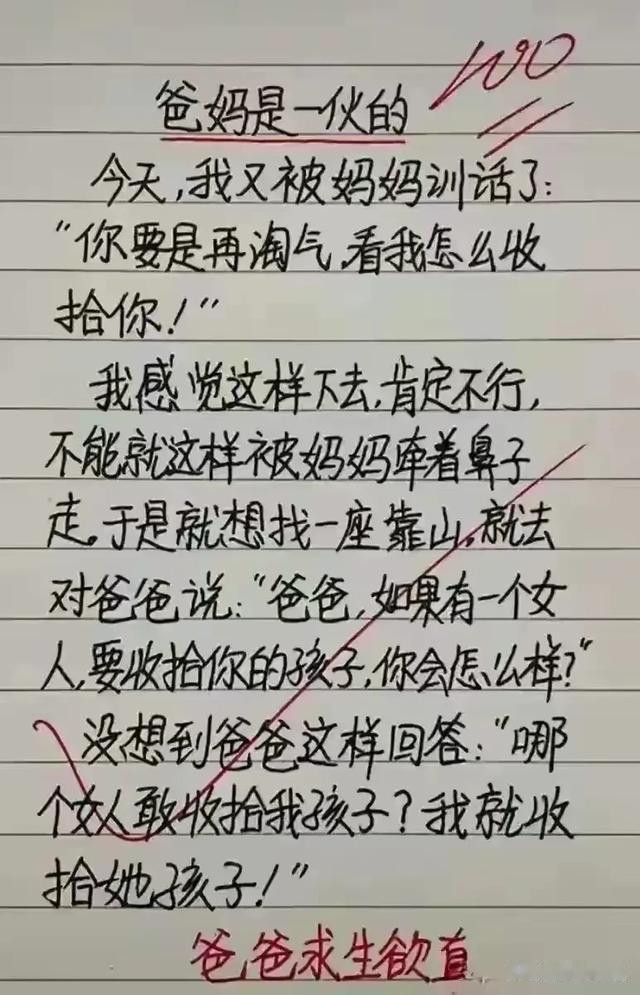 100
爸妈是一伙的
今天,我又被妈妈训话了:
“你要是再淘气,看我怎么收
拾你!”
我感觉这样下去,肯定不行,
不能就这样被妈妈牵着鼻子
走。于是就想找一座靠山,就去
对爸爸说:“爸爸,如果有一个女
人,要收拾你的孩子,你会怎么样?”
没想到爸爸这样回答:“哪
个女人敢收拾我孩子?我就收
拾她孩子!”
爸爸求生欲真